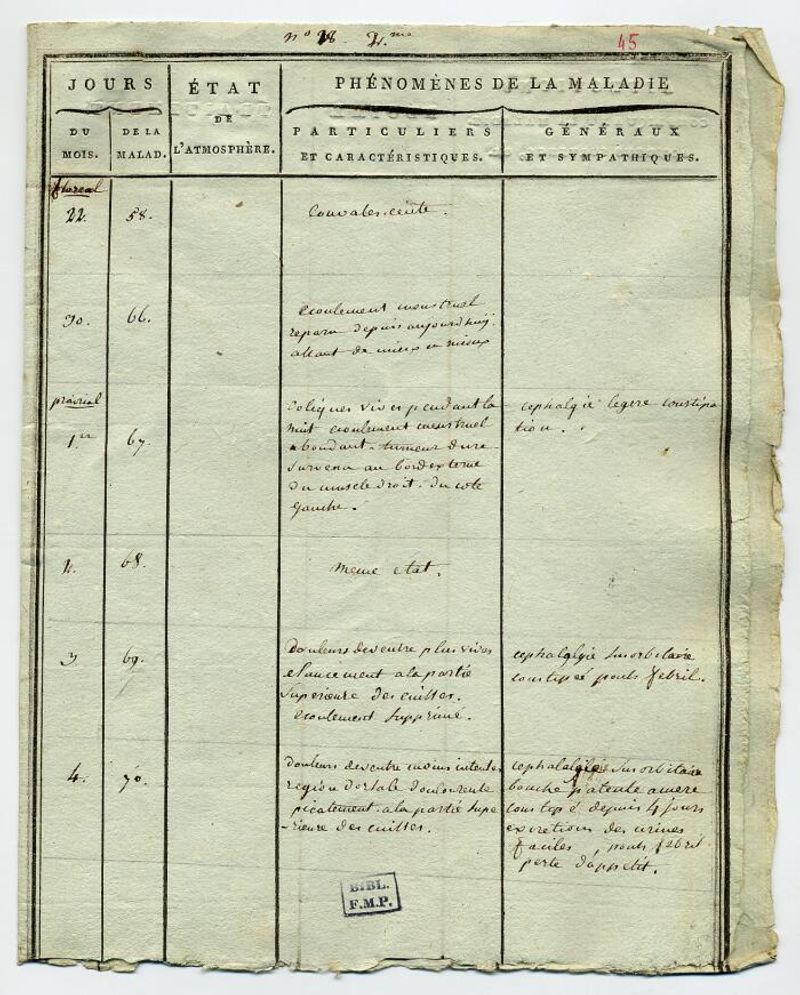 n° 18. 2.me
45
JOURS
DU MOIS.
DE LA MALAD.
ÉTAT
DE
L'ATMOSPHÈRE.
PHÉNOMÈNES DE LA MALADIE
PARTICULIERS
ET CARACTÉRISTIQUES.
GÉNÉRAUX
ET SYMPATHIQUES.
floreal
22. 58. Convalescente.
30. 66. ecoulement menstruel
reparu depuis aujourdhuij.
allant de mieux en mieux
prairial
1er 67. coliques vives pendant la
nuit ecoulement menstruel
abondant. tumeur dure
survenu au bord externe
du muscle droit. du coté
gauche.
cephalgie legere constipa
tion.
2. 68. meme etat.
3 69. Douleurs de ventre plus vives
elancement a la partie
superieure des cuisses.
ecoulement supprimé.
cephalgie susorbitaire
constipeé pouls febril.
4. 70. douleurs de ventre moins intenses
region dorsale douloureuse
picotement. a la partie supe
-rieure des cuisses.
cephalalgie susorbitaire
bouche pateuse amere
constipé depuis 4 jours
excretions des urines
faciles, pouls febril
perte d'appetit.
BIBL.
F.M.P.